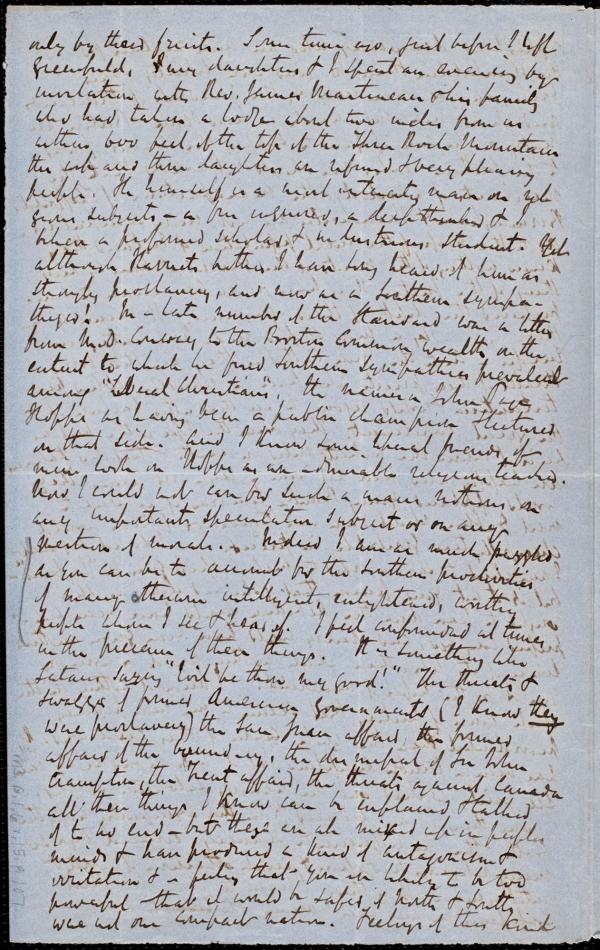 only by their fruits. Some time ago, just before I left
Greenbank, my daughters & I spent an evening by
invitation with Rev. James Martineau & his family
who had taken a lodge about two miles from us
within 600 feet of the top of the Three Rock Mountain
the wife and three daughters are refined & very pleasing
people. He himself is a most interesting man on reli-
gious subjects – a fine reasoner, a deep thinker &
I believe a profound scholar & industrious student. Yet
although Harriet's brother I have long heard of him as
strongly proslavery, and now as a Southern sympa-
thizer! In a late number of the Standard was a letter
from M.D. Conway to the Boston Commonwealth on the
extent to which he found Southern sympathies prevalent
among "Liberal Christians", he names a John Page
Hopps as having been a public champion & lectured
on that side. And I know some liberal friends of
mine look on Hopps as an admirable religious teacher.
Now I could not care for such a man's notions on
any important speculative subject or on any
question of morals. Indeed I am as much puzzled
as you can be to account for the Southern proclivities
of many otherwise intelligent, enlightened, worthy
people whom I see & hear of. I feel confounded at times
in the presence of these things. It is something like
Satan's saying "Evil be thou my good!" The threats &
swagger of former American governments (I know they
were proslavery) the San Juan affair, the former
affair of the boundary, the dismissal of Sir John
Crampton, the Trent affair, the threats against Canada
all these things I know can be explained & talked
of to no end – but these are all mixed up in people's
minds & have produced a kind of antagonism &
irritation & a feeling that you are likely to be too
powerful – that it would be safer if North & South
were not one compact nation. Feelings of this kind